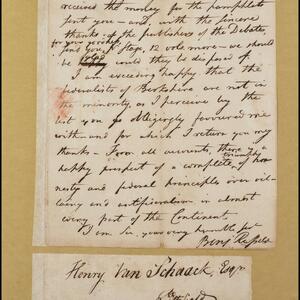 received the money for the pamphlets
sent you – and, with the sincere
thanks of the publishers of the Debates
for your goodness,
sent you, pr Stage, 12 vols more – we should
be could they be disposed of.
I am exceeding happy that the
federalists of Berkshire are not in
the minority, as I perceive by the
last you so obligingly favoured me
with – and for which I return you my
thanks – From all accounts, there is a
happy prospect of a complete triumph of ho-
nesty and federal principles over vil-
lainy and antifederalism in almost
every part of the Continent.
I am Sir, your very humble ser
Benj Russell
Henry Van Schaack, Esqr
Pittsfield